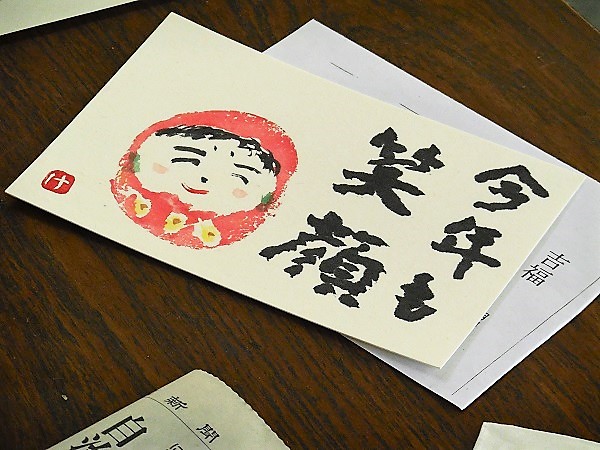 今年も
笑顔
け
吉福
新聞
自治